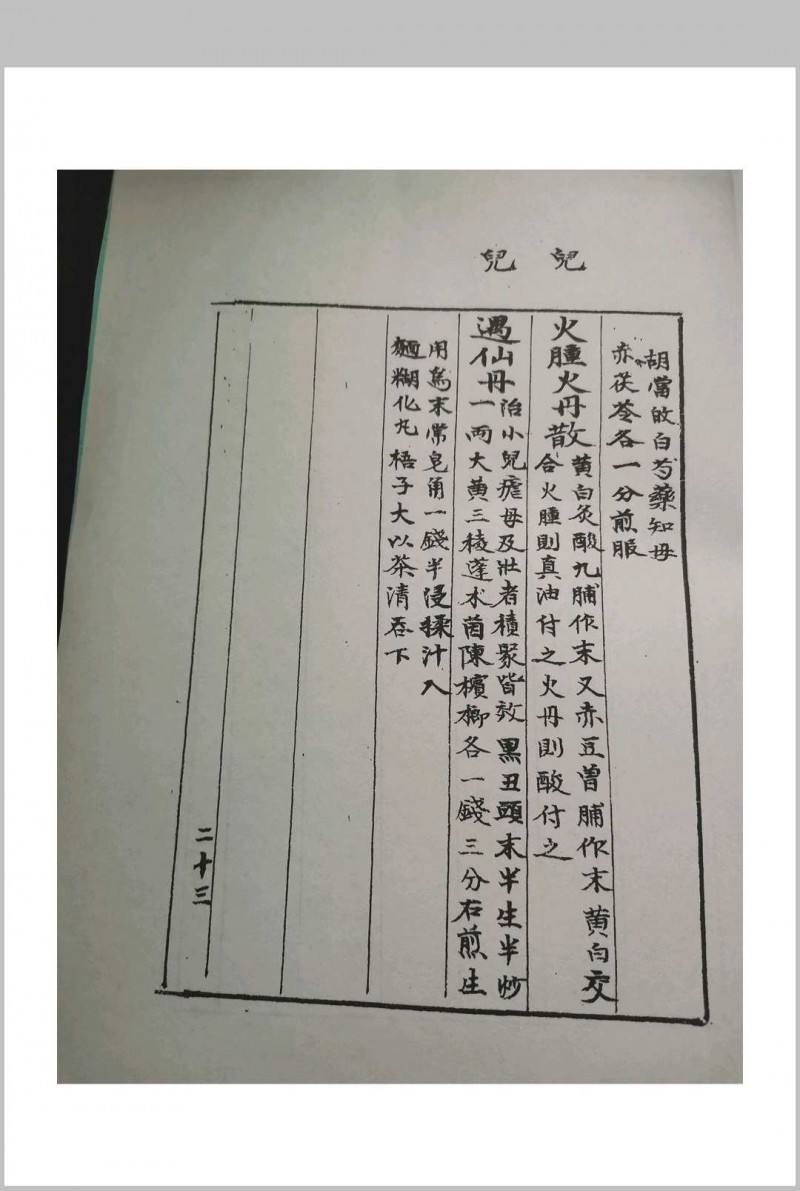 兒
兒
胡當皈白芍藥知母
赤茯苓各一分煎服
火腫火丹散
黄白灸酸九脯作末又赤豆曽脯作末黄白交
合火腫則真油付之火丹則酸付之
遇仙丹
治小兒瘧母及壯者積聚皆效黑丑頭末半生半炒
一兩大黄三稜蓬朮茵陳檳榔各一錢三分右煎生
用為末常皂角一錢半浸揉汁入
麵糊化丸梧子大以茶清吞下
二十三